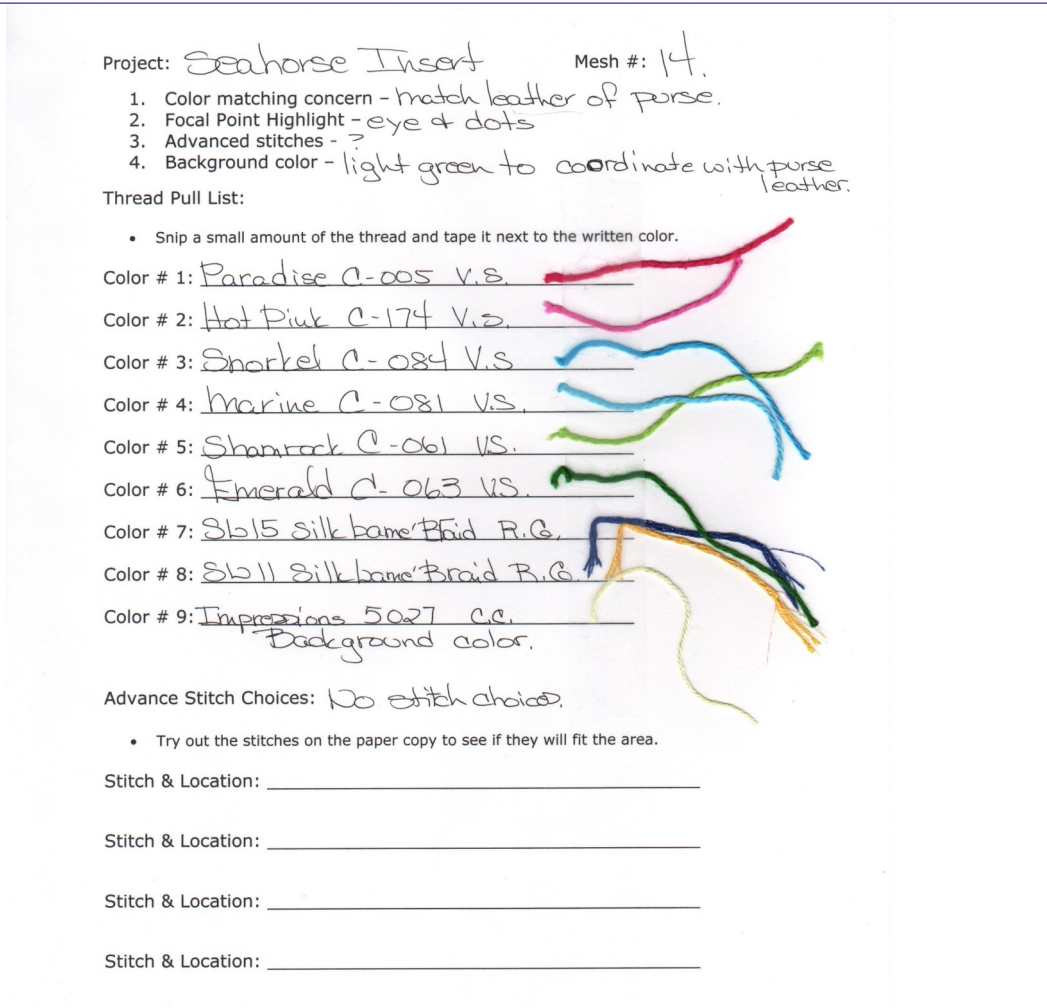 Project: Seahorse Insert Mesh #: 14.
1. Color matching concern – match leather of purse.
2. Focal Point Highlight – eye & dots
3. Advanced stitches - ?
4. Background color – light green to coordinate with purse
leather.
Thread Pull List:
• Snip a small amount of the thread and tape it next to the written color.
Color # 1: Paradise C-005 V.S.
Color # 2: Hot Pink C-174 V.S.
Color # 3: Snorkel C-084 V.S
Color # 4: Marine C-081 V.S.
Color # 5: Shamrock C-061 VS.
Color # 6: Emerald C-063 VS.
Color # 7: Sb15 Silk lame' Braid R.G.
Color # 8: Sb11 Silk lame' Braid R.G.
Color # 9: Impressions 5027 C.C.
Background color.
Advance Stitch Choices: No stitch choices.
• Try out the stitches on the paper copy to see if they will fit the area.
Stitch & Location:
Stitch & Location:
Stitch & Location:
Stitch & Location: